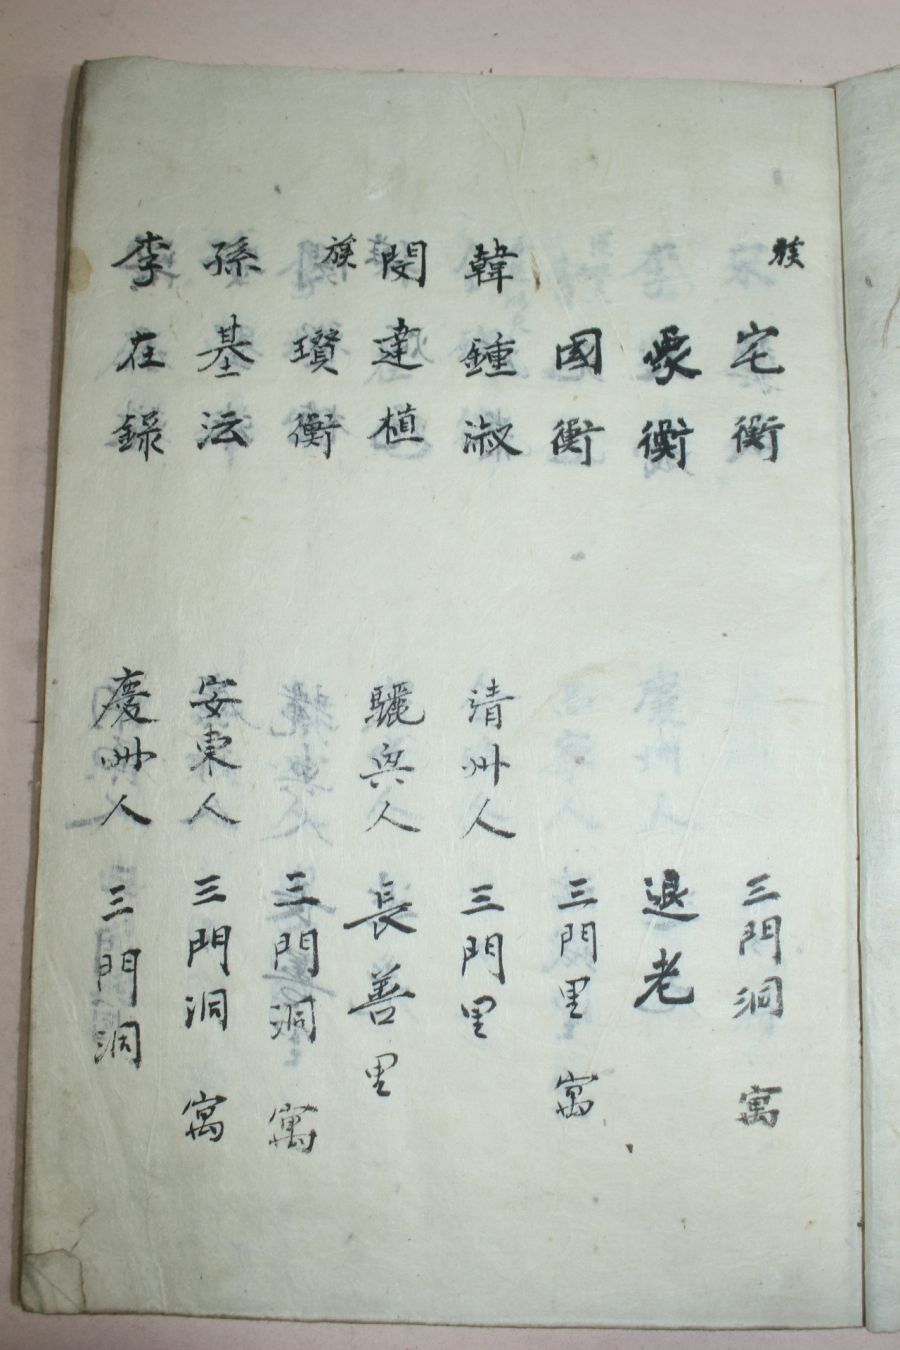 族 宅衡 三門洞 寓
衆衡 退老
國衡 三門里 寓
韓鍾淑 清州人 三門里
閔達植 驪興人 長善里
族 瓚衡 三門洞 寓
孫基沄 安東人 三門洞 寓
李在録 慶州人 三門洞